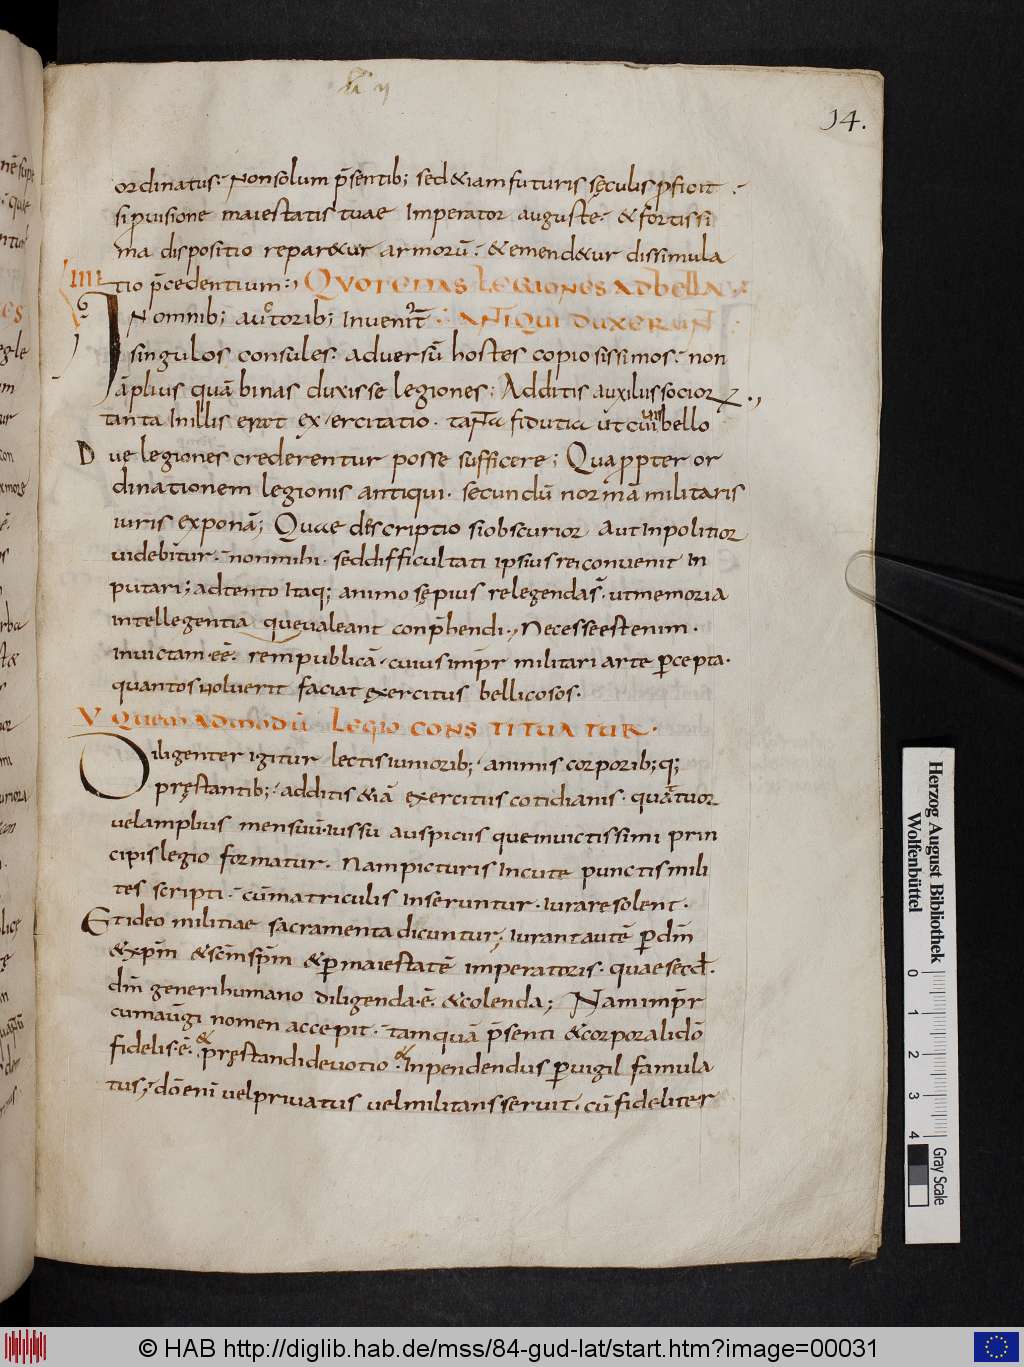 14.
ordinatus. Non solum p̄sentib; sed & iam futuris sęculis ꝓficit
si ꝓuisione maiestatis tuae Imperator auguste. & fortissi
ma dispositio repar&ur armorū. & emend&ur dissimula
IIII tio p̄cedentium. QVOTENAS LEGIONES AD BELLA
IN omnib; auctoribus; Inuenit͛. ANTIQUI DUXERUNT
singulos consules. aduersū hostes copiosissimos. non
āplius quā binas duxisse legiones. Additis auxiliis socioꝝ.
tanta In illis erat exercitatio. tanta fidutia ut cuiuis bello
Due legiones crederentur posse sufficere; Quaꝓpter or
dinationem legionis antiqui. secundū normā militaris
iuris exponā; Quae descriptio si obscurior aut Inpolitior
uidebitur. non mihi. sed difficultati ipsius rei conuenit In
putari; adtento Itaq; animo sępius relegenda s̄. ut memoria
intellegentia que ualeant conp̄hendi. Necesse est enim.
inuictam. eē. rempublicā. cuius imp̄r militari arte ꝑcepta.
quantos uoluerit faciat exercitus bellicosos.
V QUEM AD MODŪ LEGIO CONSTITUATUR.
Diligenter igitur lectis iuniorib; animis corporib; q;
pręstantib; additis &iā exercitus cotidianis. quattuor
uel amplius mensuū. iussu auspiciis que inuictissimi prin
cipis legio formatur. Nam picturis In cute punctis mili
tes scripti. cū matriculis Inseruntur. iurare solent.
Et ideo militiae sacramenta dicuntur; iurant autē ꝑ dm̄
& xp̄m & scm̄ sp̄m & ꝑ maiestatē imperatoris. quae secd̄.
dm̄ generi humano diligenda. ē. & colenda; Nam imp̄r
cum augi nomen accepit. tamquā p̄senti & corporali dō
fidelis. ē. & pręstandi deuotio. & Inpendendus ꝑuigil famula
tus; dō enī uel priuatus uel militans seruit. cū fideliter
Herzog August Bibliothek
Wolfenbüttel
0 1 2 3 4
Gray Scale
© HAB http://diglib.hab.de/mss/84-gud-lat/start.htm?image=00031